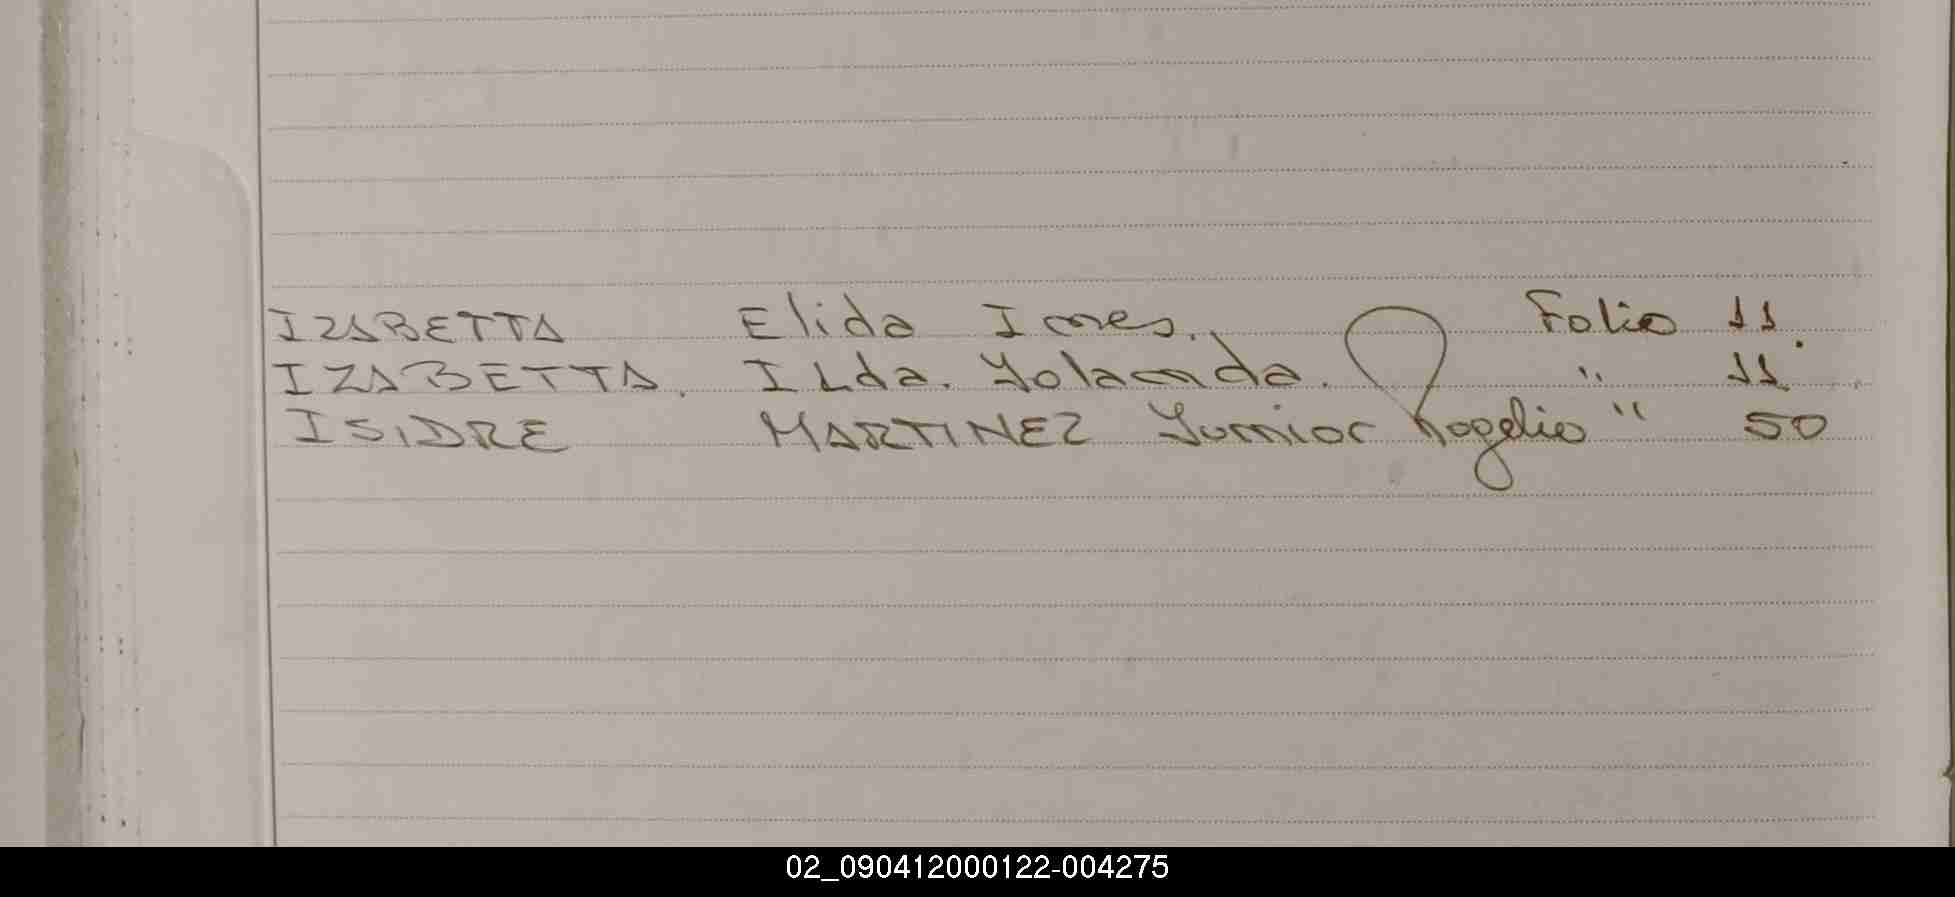 IZABETTA Elida Ines. Folio 11.
IZABETTA. ILda. Yolanda. " 11.
ISIDRE MARTINEZ Junior Rogelio " 50
02_090412000122-004275